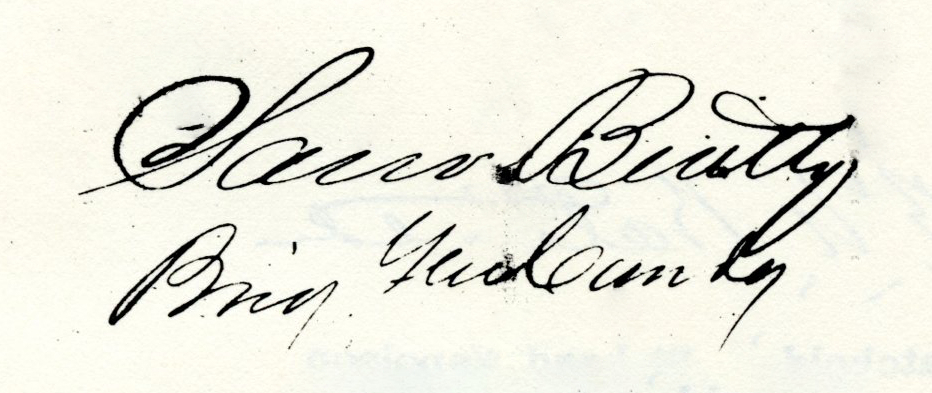 Saml Beatty
Brig Genl Comdg